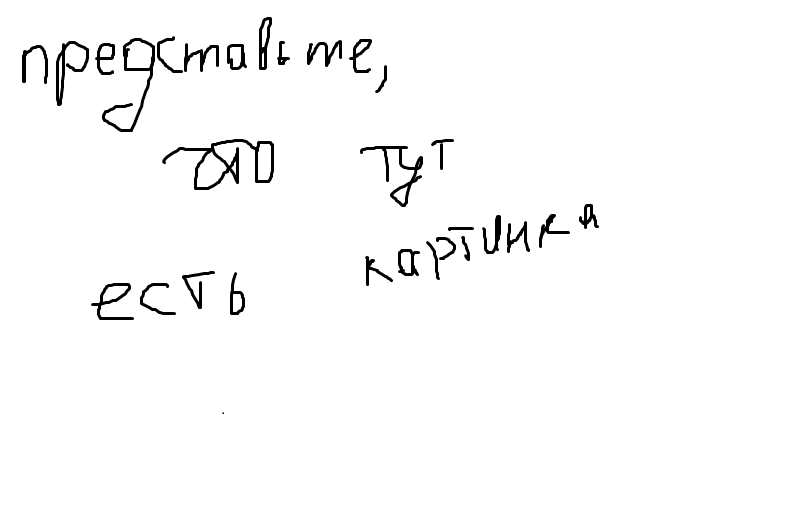 представьте,
что тут
есть картинка